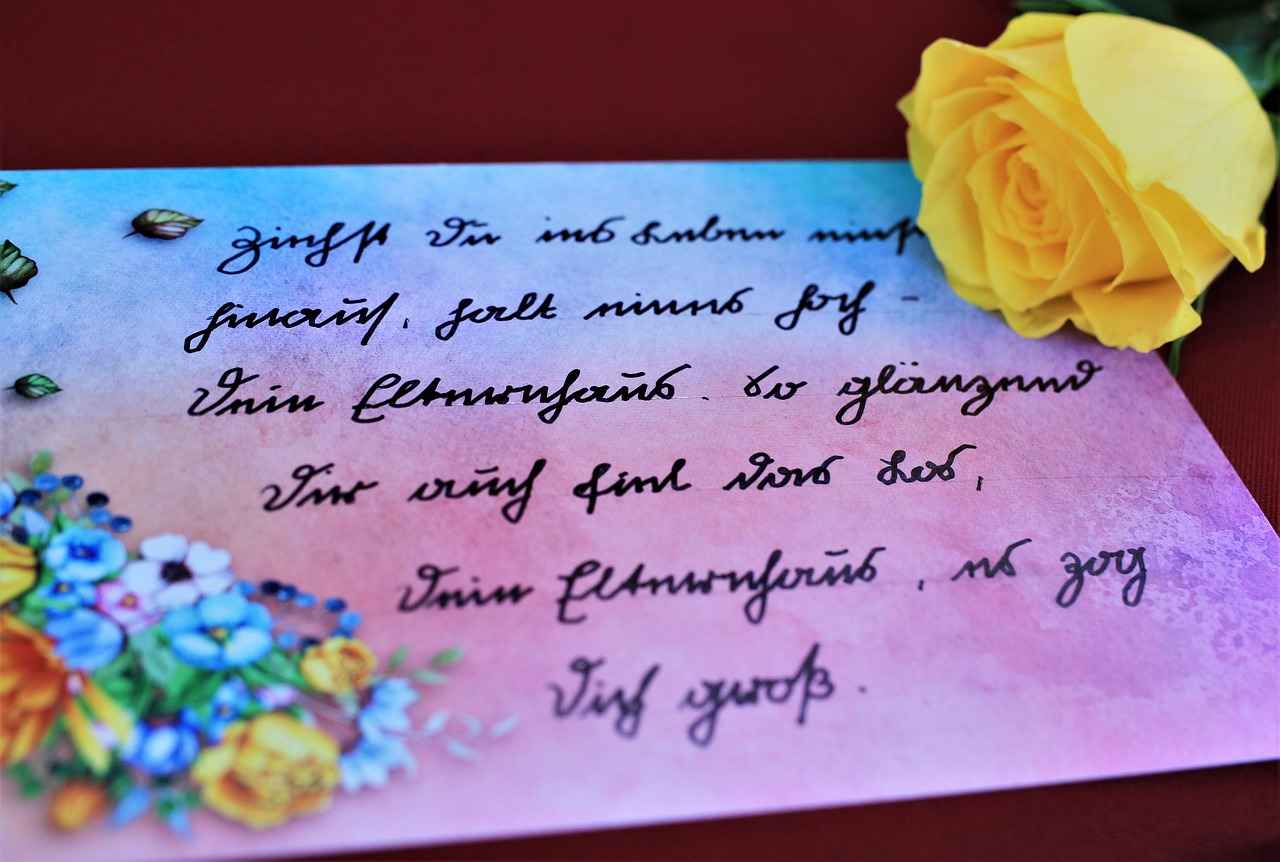 Ziehst Du ins Leben einst
hinaus, halt eines hoch -
Dein Elternhaus. So glänzend
Dir auch fiel das Los,
Dein Elternhaus, es zog
Dich groß.